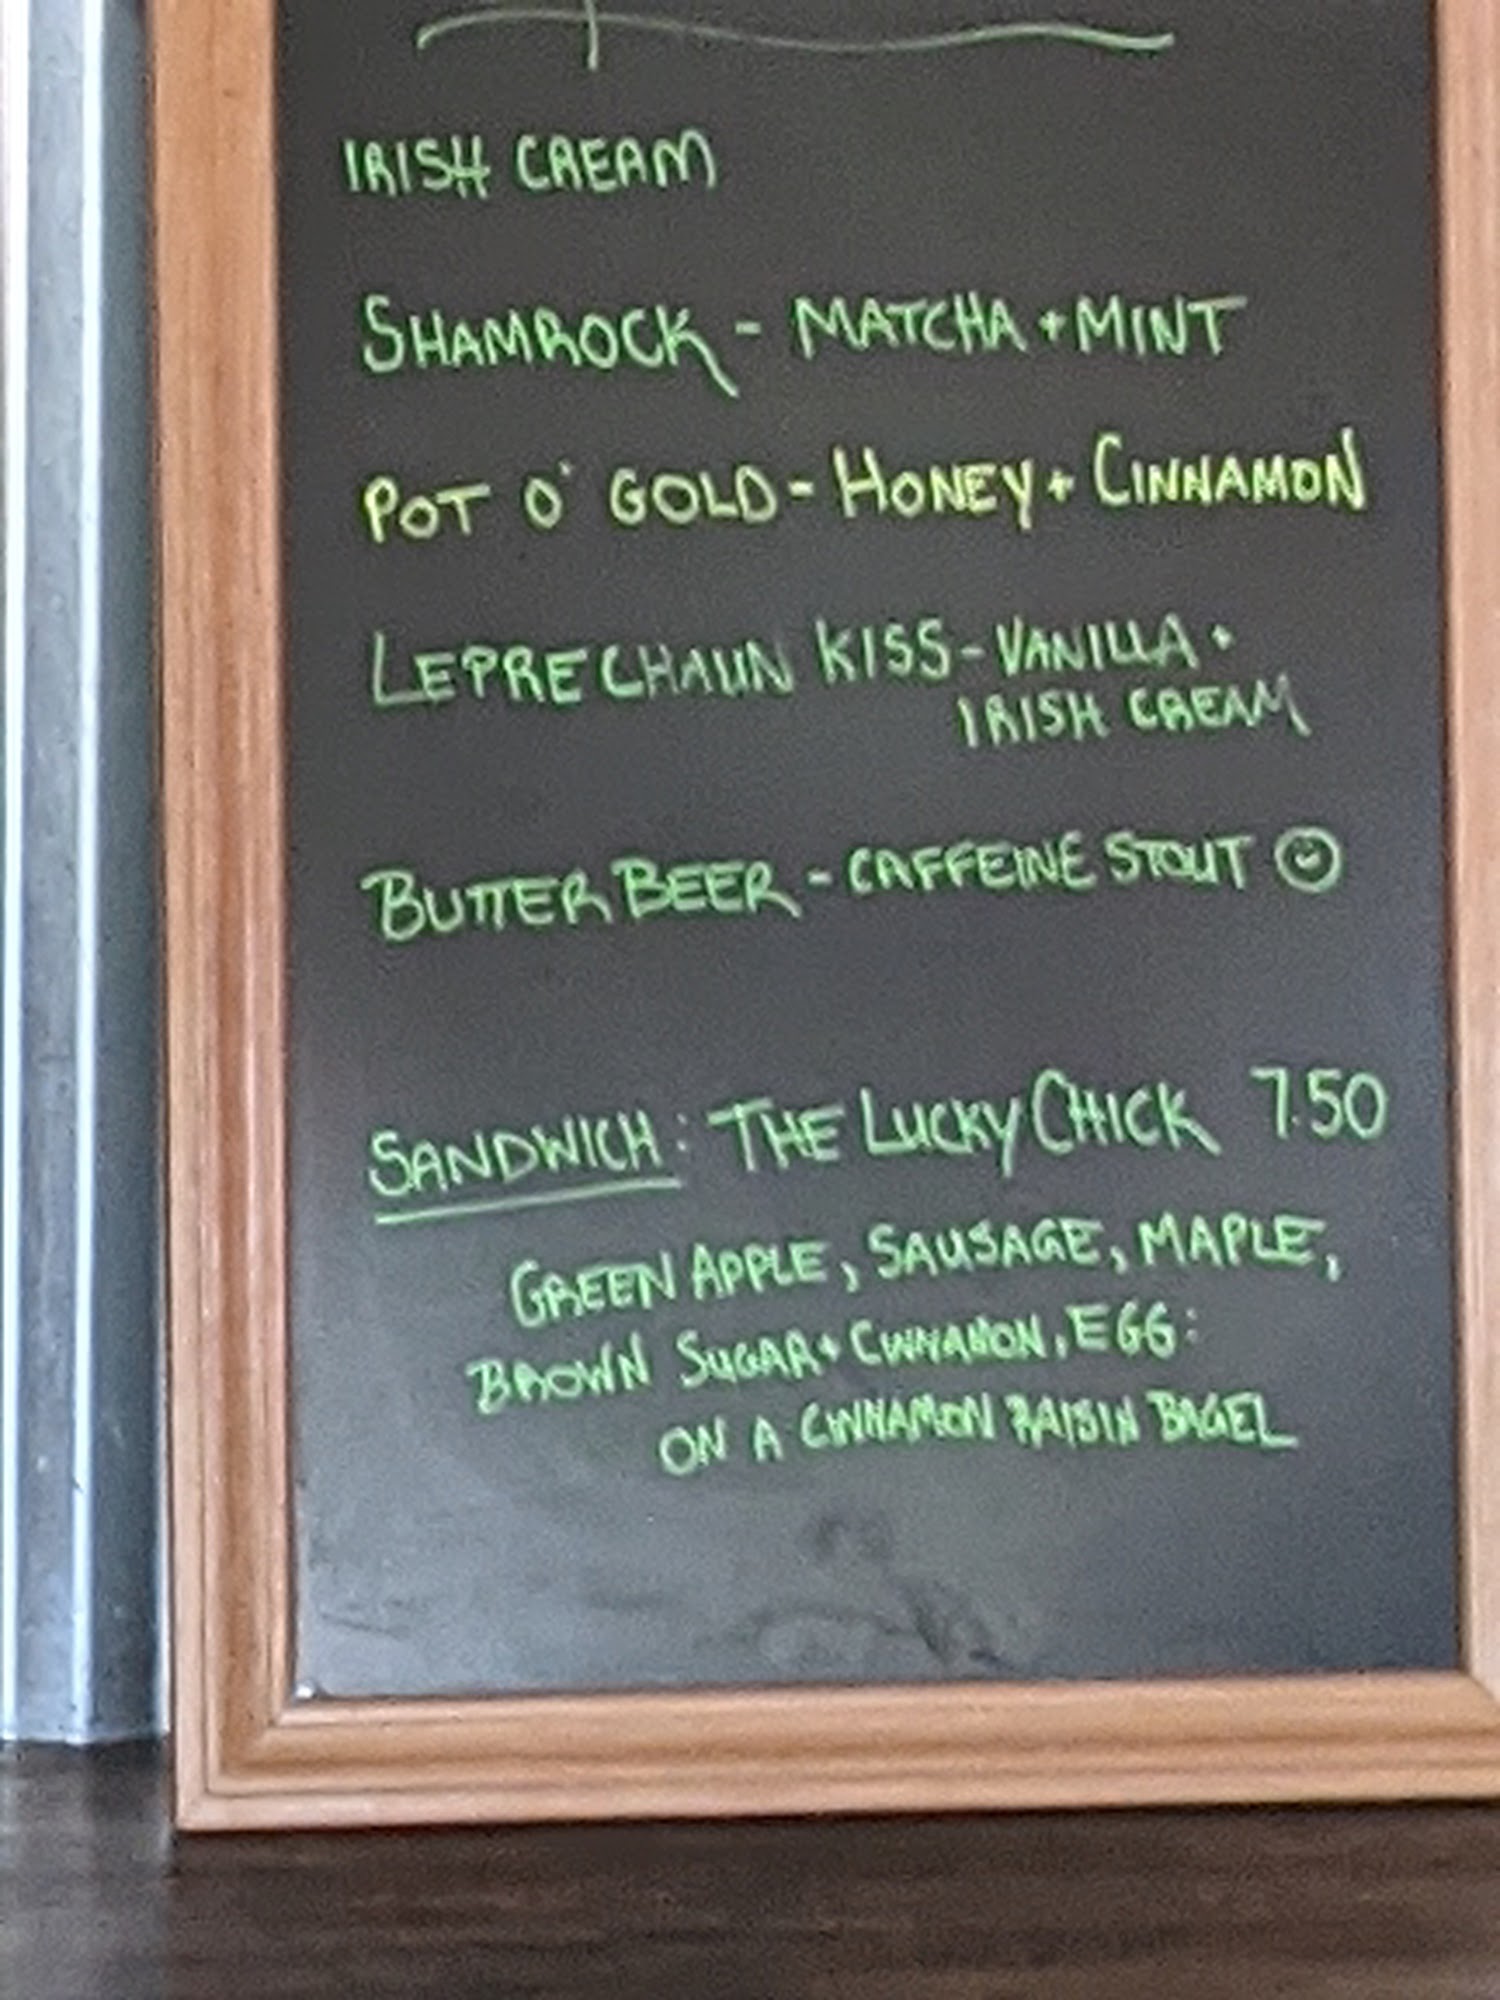 IRISH CREAM
SHAMROCK - MATCHA + MINT
POT O' GOLD - HONEY + CINNAMON
LEPRECHAUN KISS - VANILLA +
IRISH CREAM
BUTTER BEER - CAFFEINE STOUT
SANDWICH: THE LUCKY CHICK 7.50
GREEN APPLE, SAUSAGE, MAPLE,
BROWN SUGAR + CINNAMON, EGG:
ON A CINNAMON RAISIN BAGEL